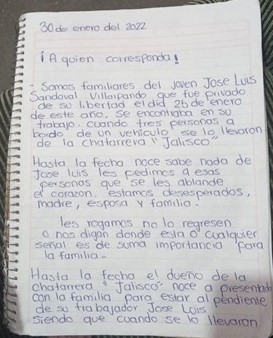 30 de enero del 2022
¡A quien corresponda!
Somos familiares del joven Jose Luis
Sandoval Villalpando que fue privado
de su libertad el dia 26 de enero
de este año, se encontraba en su
trabajo. cuando tres personas a
bordo de un vehiculo se lo llevaron
de la chatarrera "Jalisco"
Hasta la fecha noce sabe nada de
Jose luis les pedimos a esas
personas que se les ablande
el corazon, estamos desesperados,
madre, esposa y familia.
les rogamos no lo regresen
o nos digan donde esta o cualquier
señal es de suma importancia para
la familia.-
Hasta la fecha el dueño de la
chatarrera "Jalisco" noce a presentado
con la familia para estar al pendiente
de su trabajador Jose Luis
Siendo que cuando se lo llevaron